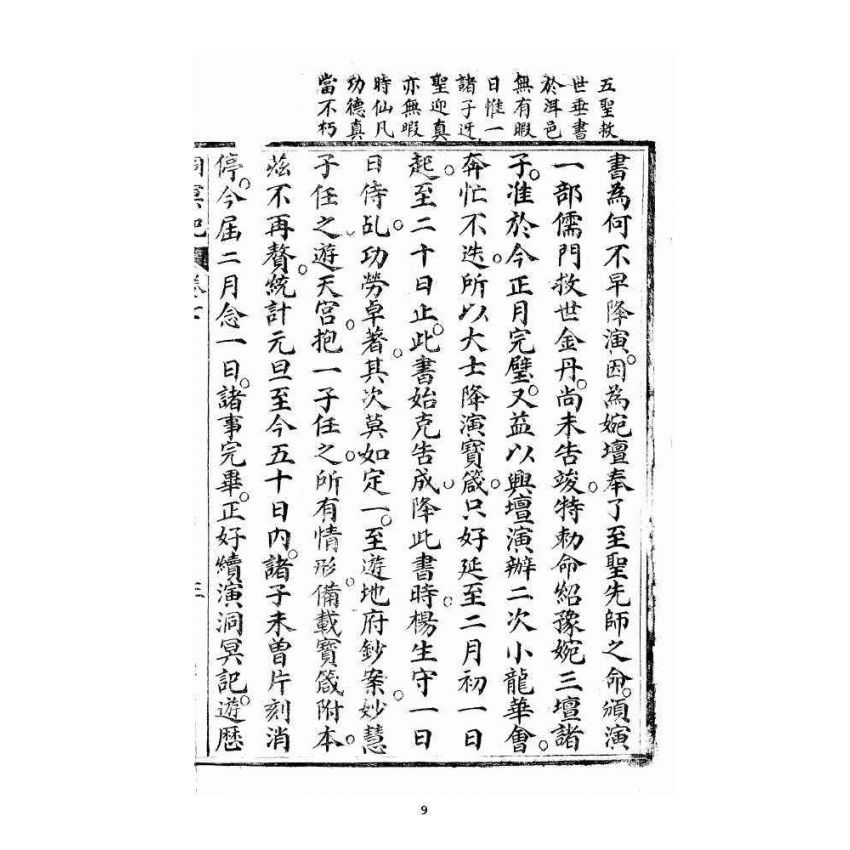 五聖救
世垂書
於洱邑
無有暇
日惟一
諸子迓
聖迎真
亦無暇
時仙凡
功德真
當不朽
書為何不早降演。因為婉壇奉了至聖先師之命。頒演
一部儒門救世金丹。尚未告竣。特勅命紹豫婉三壇諸
子。准於今正月完璧。又益以興壇演辦二次小龍華會。
奔忙不迭。所以大士降演寶箴。只好延至二月初一日
起。至二十日止。此書始克告成。降此書時。楊生守一日
日侍乩。功勞卓著。其次莫如定一。至遊地府鈔案。妙慧
子任之。遊天宮。抱一子任之。所有情形。備載寶箴附本。
茲不再贅。統計元旦至今五十日內。諸子未曾片刻消
停。今屆二月念一日。諸事完畢。正好續演洞冥記。遊歷
洞冥記 卷七 三
9